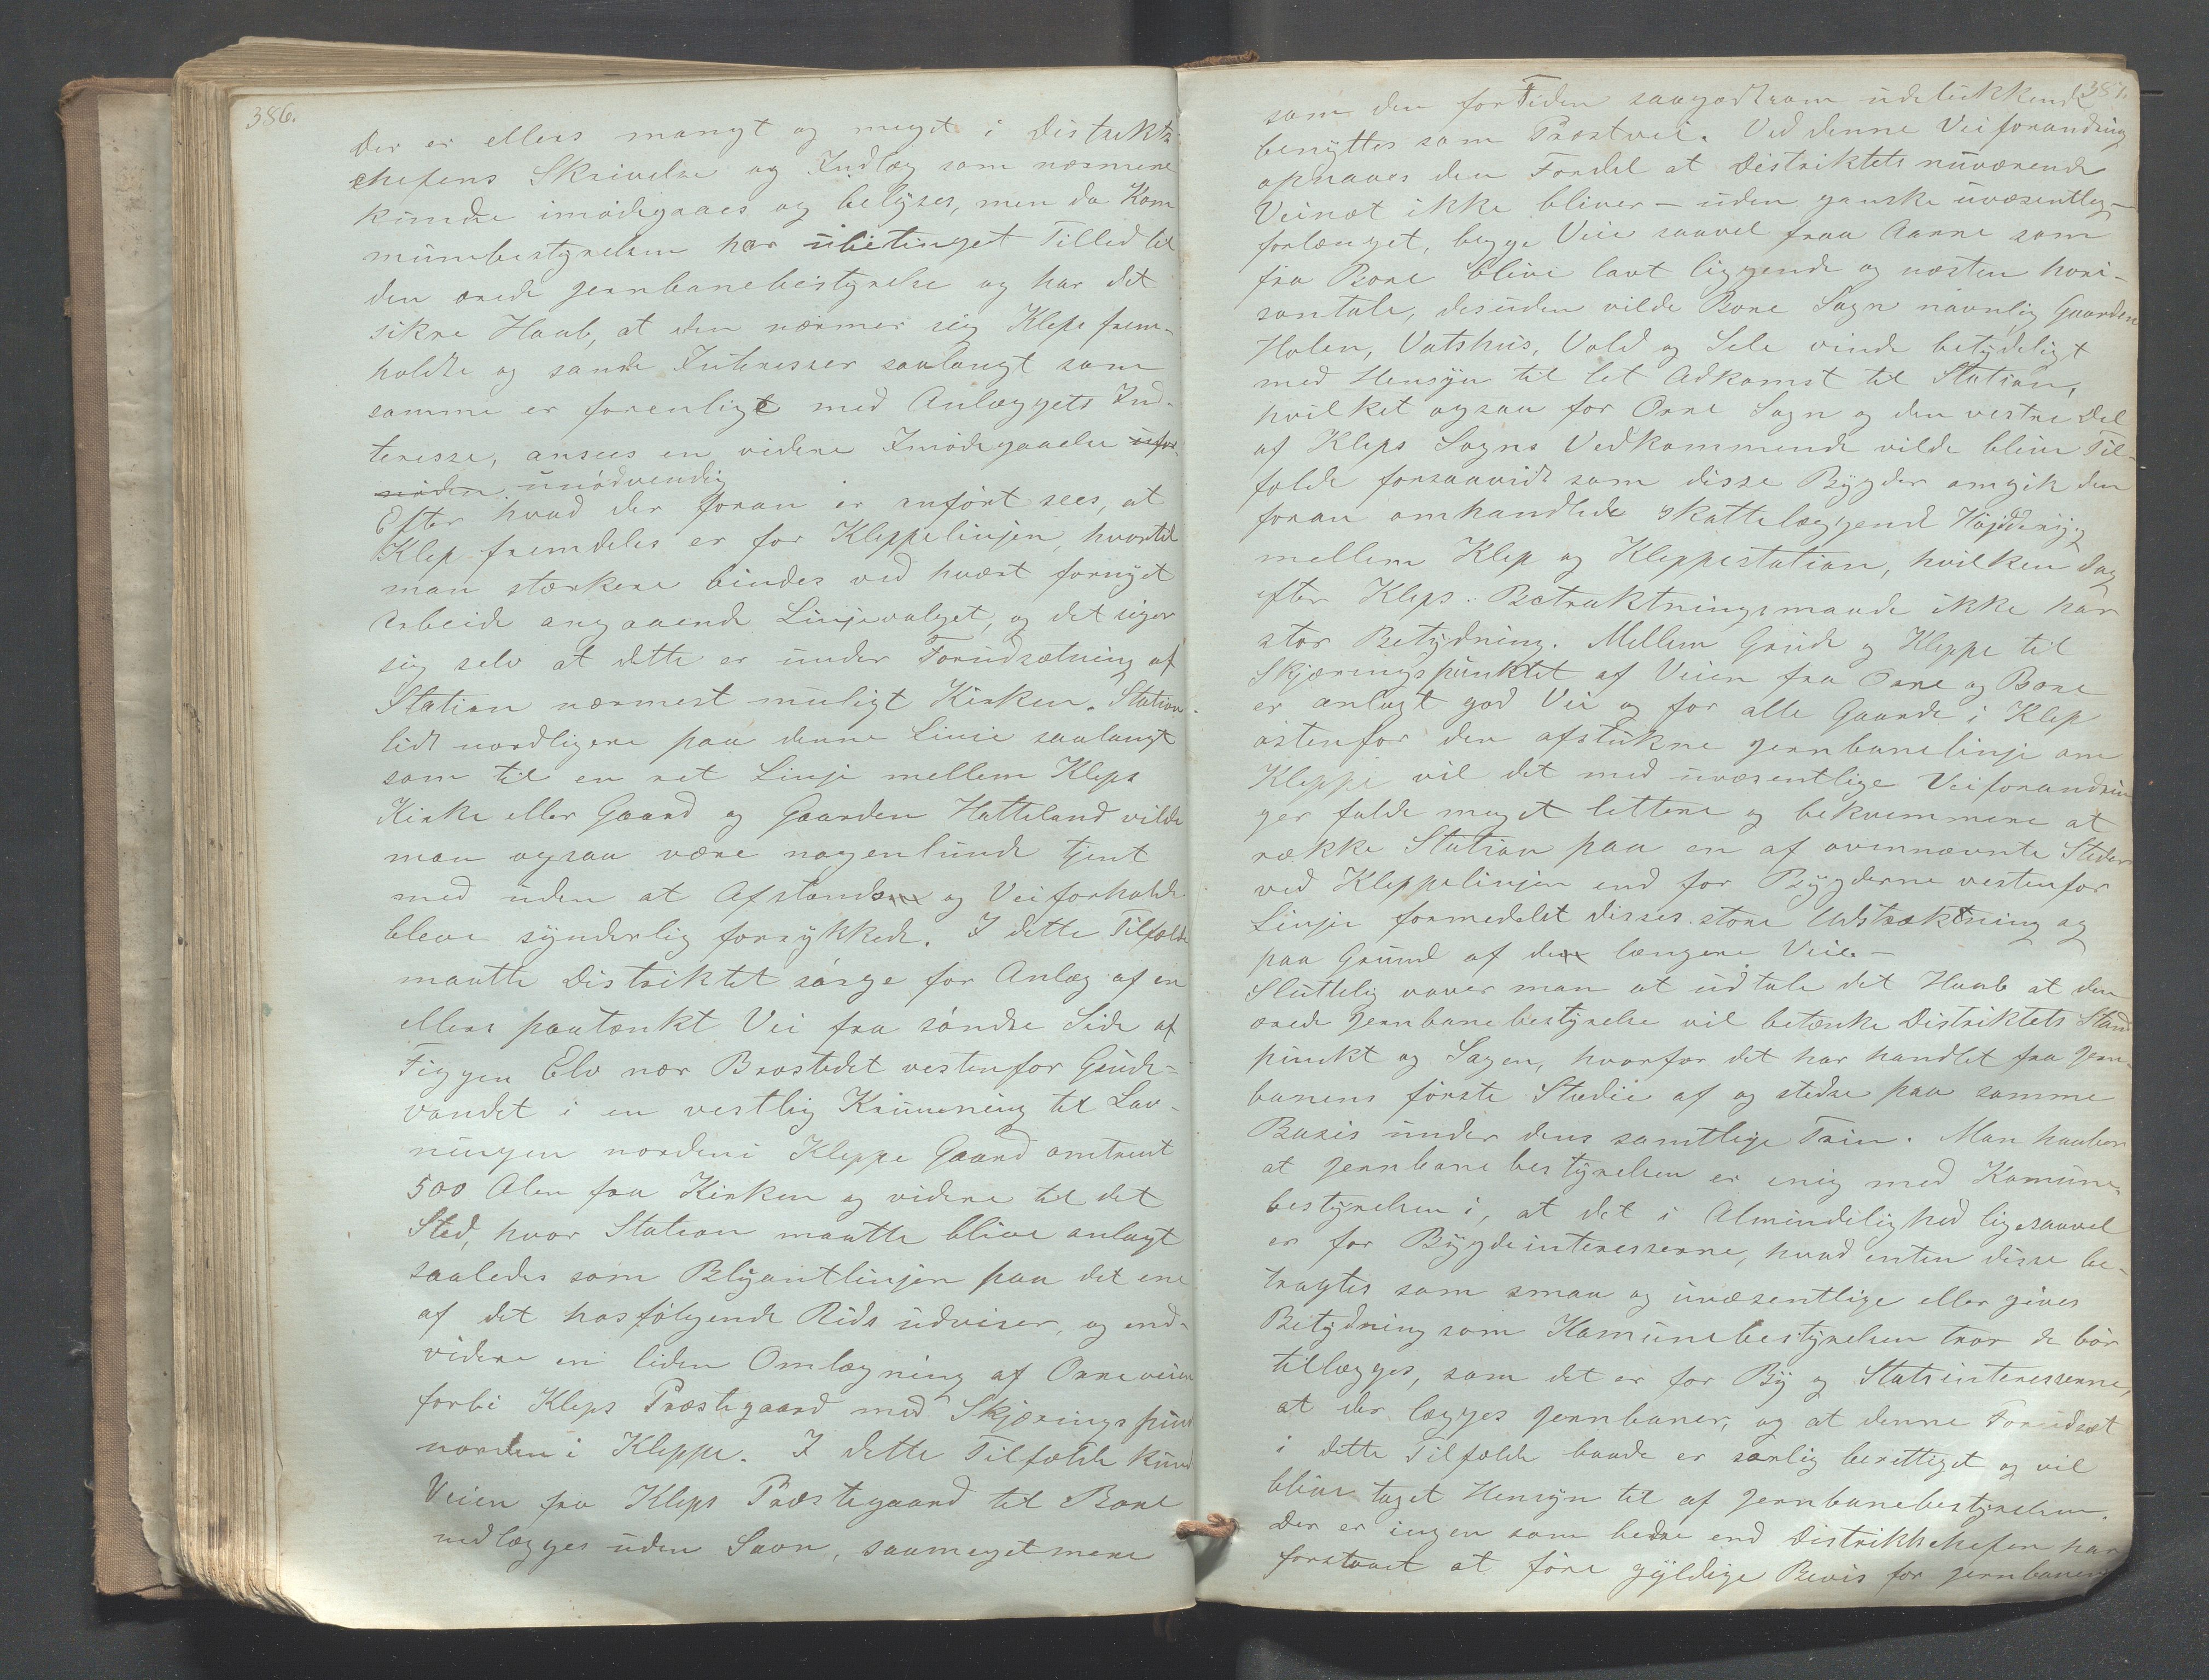 386.
Der er ellers mangt og meget i Distrikts-
chefens Skrivelse og Indlæg som nærmere
kunde imødegaaes og belyses, men da Kom
munebestyrelsen har ubetinget Tillid til
den ærede Jernbanebestyrelse og har det
sikre Haab, at den nærmer sig Kleps frem-
holdte og sande Interesser saalangt som
samme er forenligt med Anlæggets Ind-
teresse, ansees en videre Imødegaaelse ufor-
nøden unødvendig
Efter hvad der foran er anført sees, at
Klep fremdeles er for Kleppelinjen, hvortil
man stærkere bindes ved hvært fornyet
Arbeide angaaende Linjevalget, og det siger
sig selv at dette er under Forudsætning af
Station nærmest muligt Kirken. Station
lidt nordligere paa denne Linie saalangt
som til en ret Linje mellem Kleps
Kirke eller Gaard og Gaarden Hatteland vilde
man ogsaa være nogenlunde tjent
med uden at Afstands og Veiforholde
bleve synderlig forrykkede. I dette Tilfælde
maatte Distriktet sørge for Anlæg af en
ellers paatænkt Vei fra søndre Side af
Figgen Elv nær Brostedet vestenfor Grude-
vandet i en vestlig Krumning til Lav-
ningen norden i Kleppe Gaard omtrent
500 Alen fra Kirken og videre til det
Sted, hvor Station maatte blive anlagt
saaledes som Blyantlinjen paa det ene
af det hosfølgende Rids udviser, og end-
videre en liden Omlægning af Orreveien
forbi Kleps Præstegaard med Skjæringspun
norden i Kleppe. I dette Tilfælde kund
Veien fra Kleps Præstegaard til Bore
nedlægges uden Savn, saameget mere
387.
som den for Tiden saagodtsom udelukkende
benyttes som Præstvei. Ved denne Veiforandring
opnaaes den Fordel at Distriktets nuværende
Veinæt ikke bliver – uden ganske uvæsentlig –
forlænget, begge Veie saavel fraa Aarre som
fra Bore blive lavt liggende og næsten hori-
sontale, desuden vilde Bore Sogn navnlig Gaardene
Holen, Vatshus, Vold og Sele vinde betydeligt
med Hensyn til let Adkomst til Station,
hvilket ogsaa for Orre Sogn og den vestre Del
af Kleps Sogns Vedkommende vilde blive Til-
folde forsaavidt som disse Bygder omgik den
foran omhandlede skattelæggende Høideryg
mellem Klep og Kleppestation, hvilken dog
efter Kleps Betraktningsmaade ikke har
stor Betydning. Mellem Grude og Kleppe til
Skjæringspunktet af Veien fra Orre og Bore
er anlagt god Vei og for alle Gaarde i Klep
østenfor den afstukne Jernbanelinje om
Kleppe vil det med uvæsentlige Veiforandrin
ger falde meget lettere og bekvemmere at
række Station paa en af ovennævnte Steder
ved Kleppelinjen end for Bygderne vestenfor
Linjen formedelst disses store Udstrækning og
paa Grund af den længere Vei. –
Sluttelig vover man at udtale det Haab at den
ærede Jernbanebestyrelse vil betænke Distriktets Stand
punkt og Sagen, hvorfor det har handlet fra Jern-
banens første Stadie af og stedse paa samme
Basis under dens samtlige Trin. Man haaber
at Jernbanebestyrelsen er enig med Komune-
bestyrelsen i, at det i Almindelighed ligesaavel
er for Bygdeinteresserne, hvad enten disse be-
tragtes som smaa og uvæsentlige eller gives
Betydning som Komunebestyrelsen tror de bør
tillægges, som det er for By og Statsinteresserne,
at der lægges Jernbaner, og at denne Forudsæt
i dette Tilfælde baade er særlig berettiget og vil
blive taget Hensyn til af Jernbanebestyrelsen.
Der er ingen som bedre end Distriktschefen har
forstaaet at føre gyldige Bevis for Jernbanens